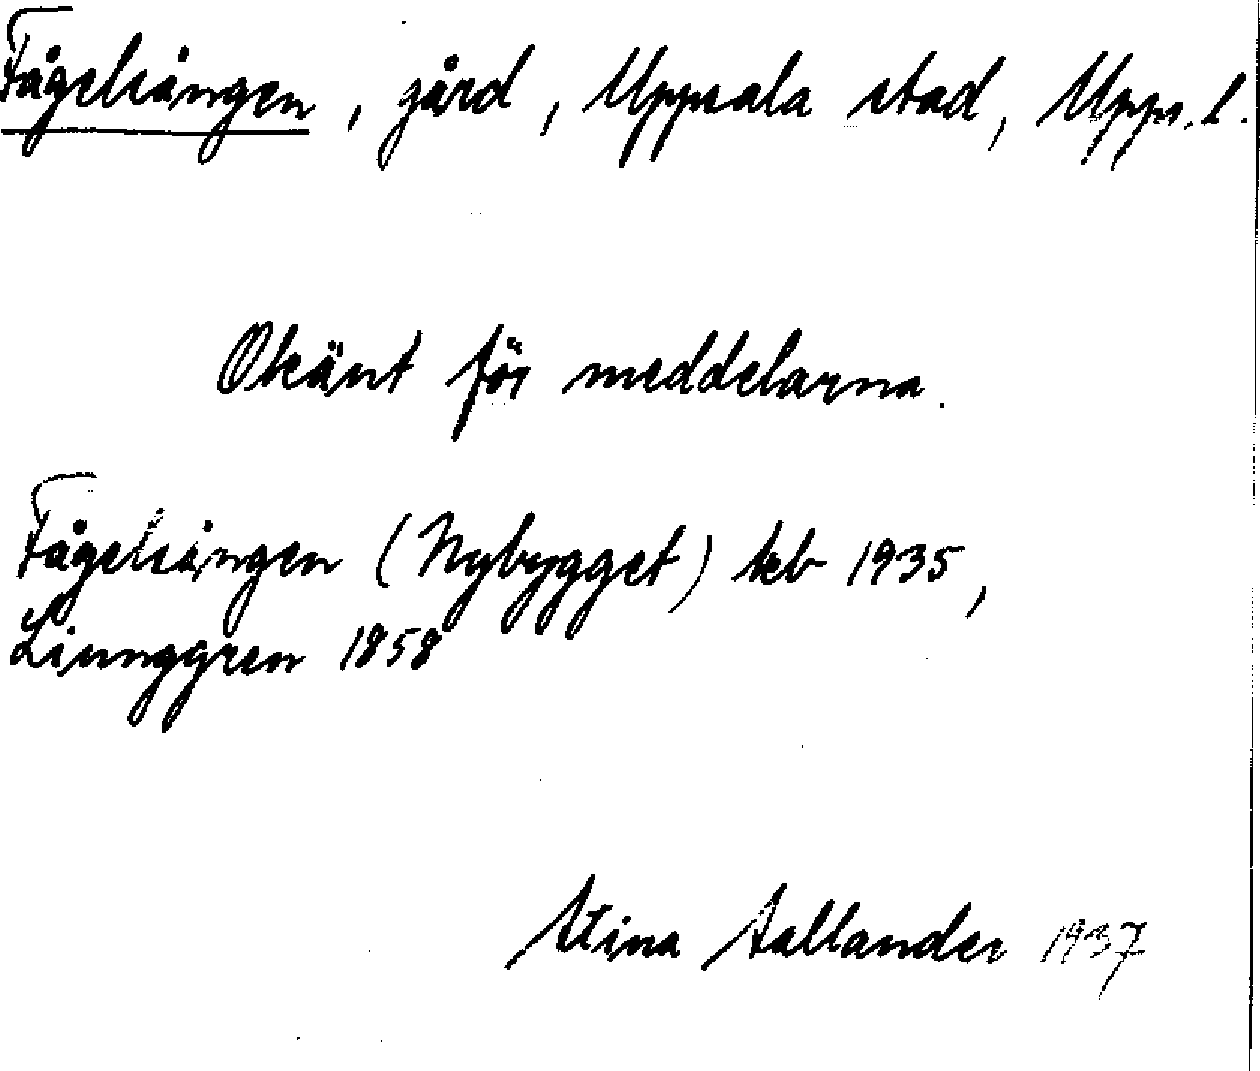 Fågelsången, gård, Uppsala stad, Upps. l.
Okänt för meddelarna.
Fågelsången (Nybygget) kb 1935,
Ljunggren 1858
Stina Sallander 1937